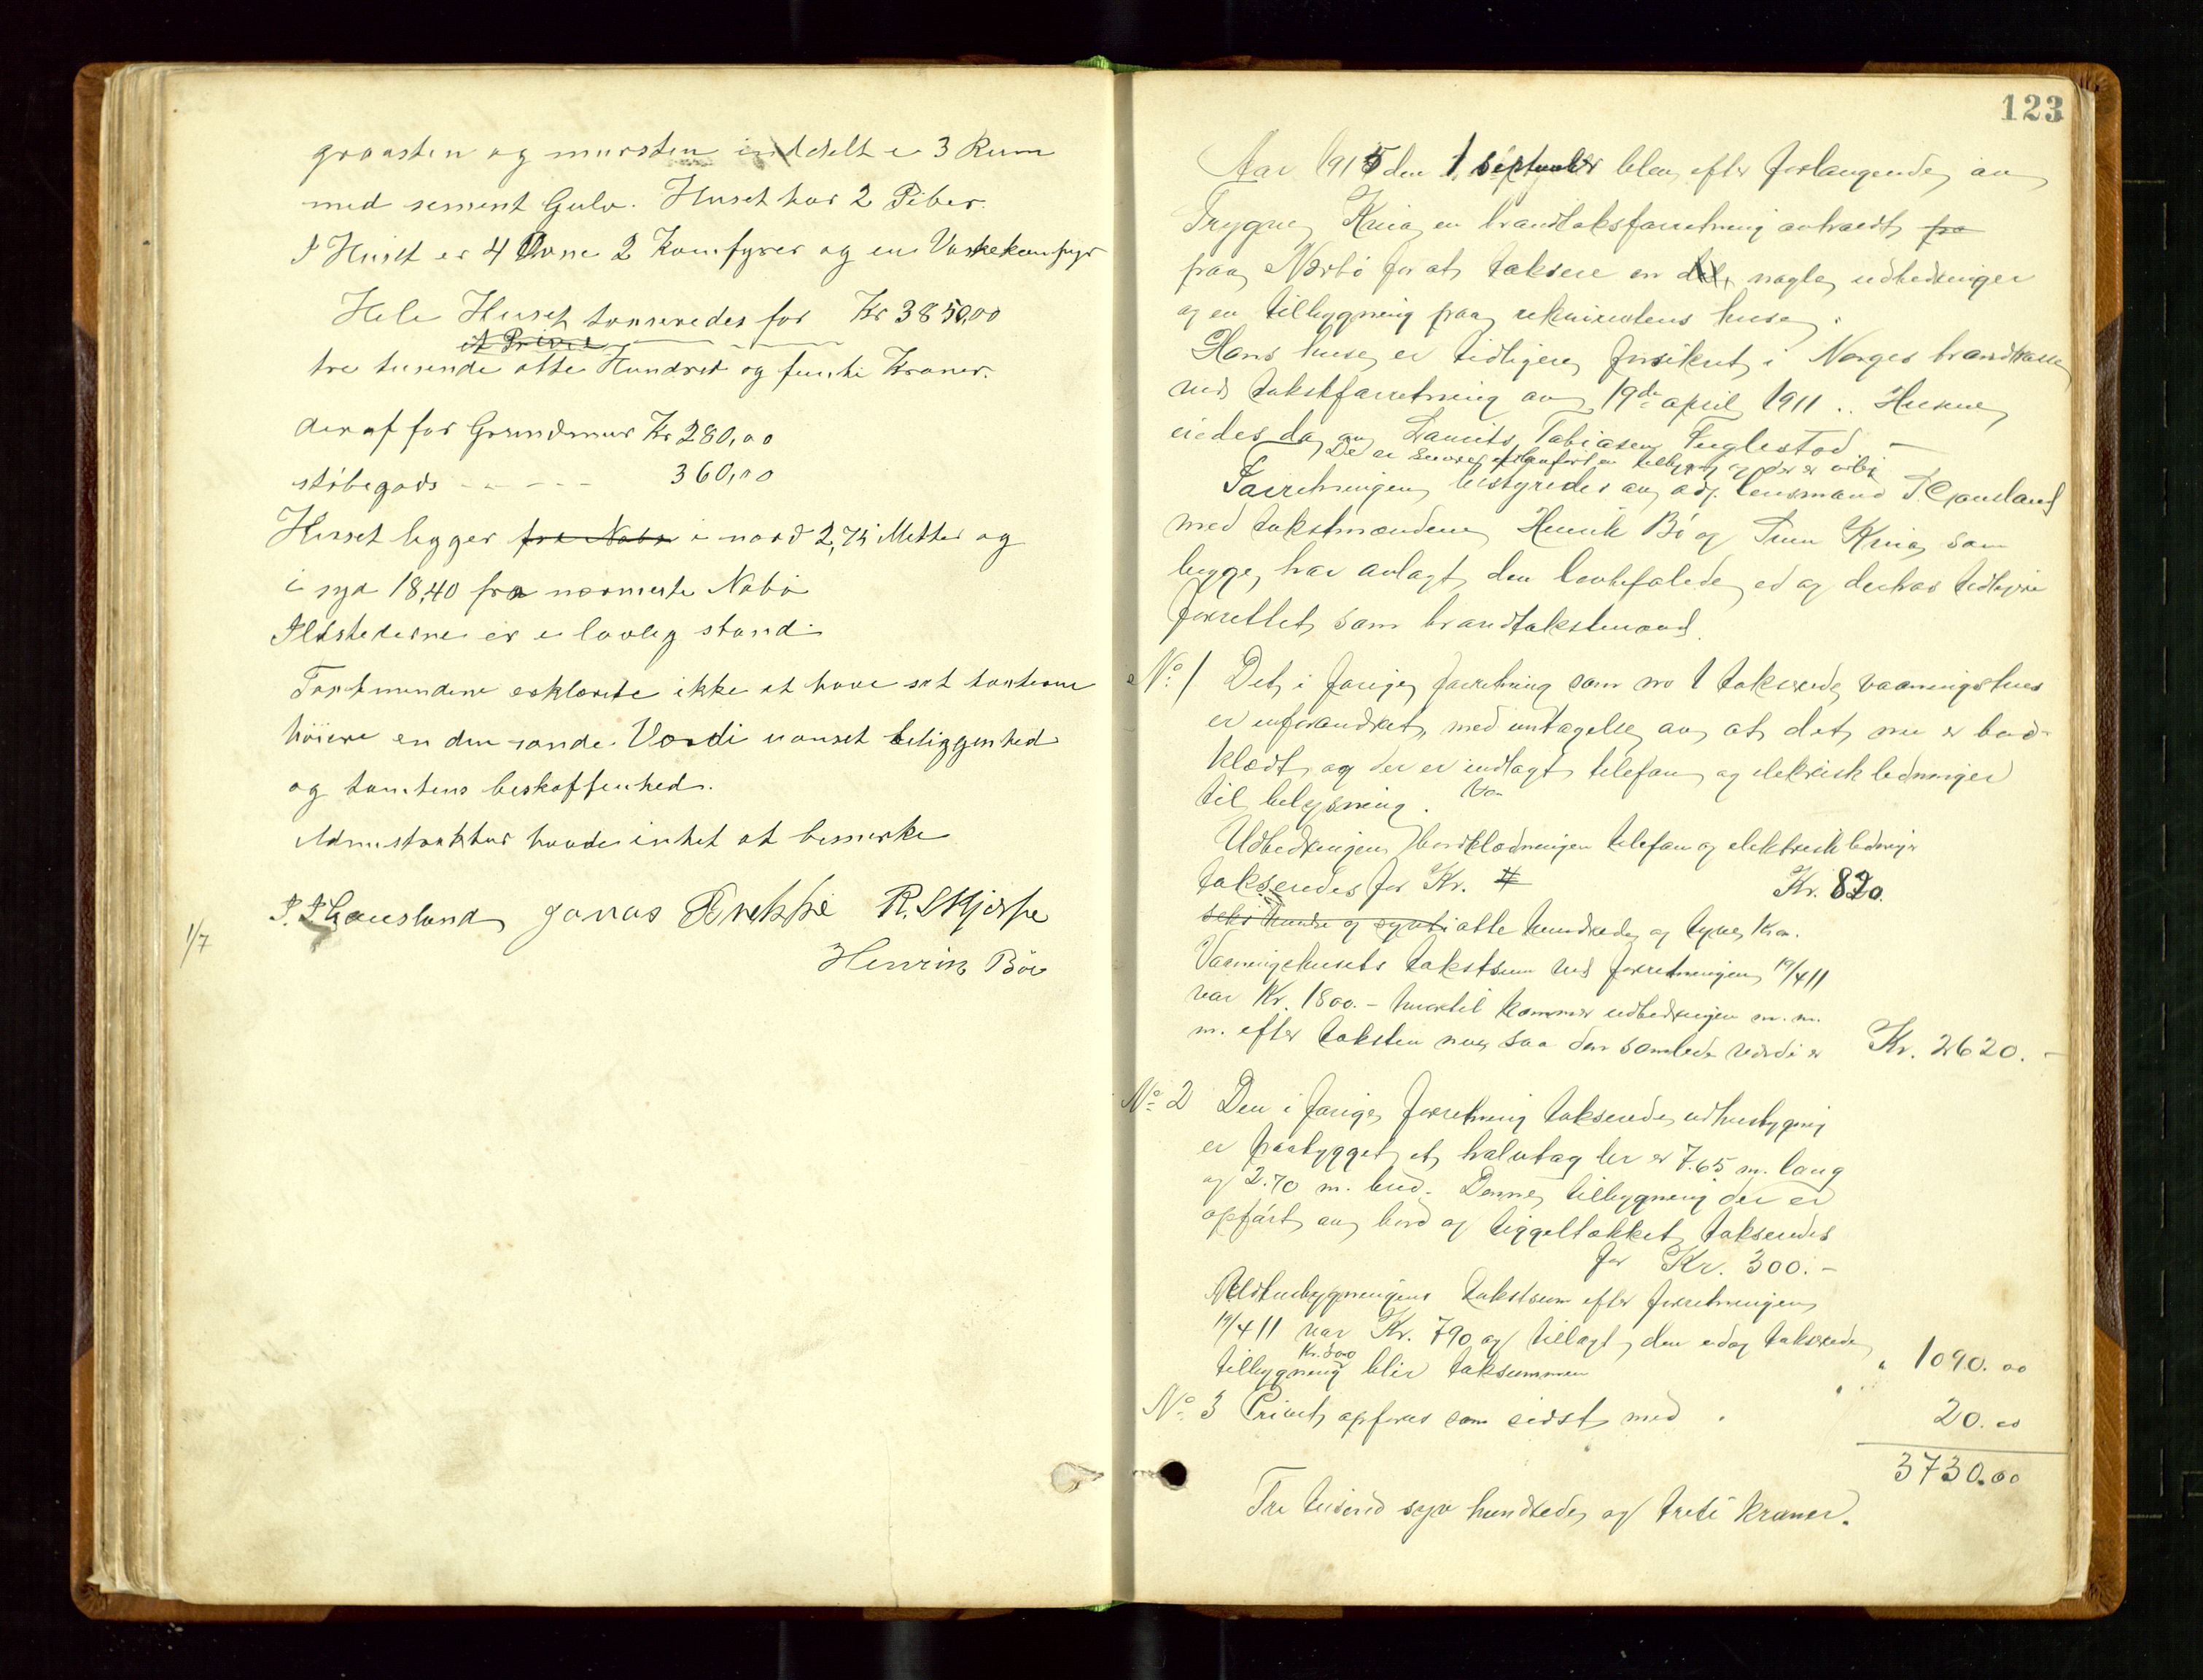 graasten og mursten inddelt i 3 Rum
med sement Gulv. Huset har 2 Piber.
I Huset er 4 Ovne 2 Komfyrer og en Vaskekomfyr
Hele Huset taxseredes for Kr 3850,00
et Privet
tre tusende otte Hundret og femti Kroner.
deraf for Grundmur Kr 280,00
støbegods - - - - 360,00
Huset ligger fra Nabo i nord 2,75 Metter og
i syd 18,40 fra nærmeste Nabo
Ildstederne er i lovlig stand.
Taxtmendene erklærede ikke at have sat taxterne
höiere en den sande Verdi uanset beliggenhed
og tomtens beskaffenhed.
Admistraktur havde intet at bemerke
1/7
J. Gausland Jonas Brekke R. Skjerpe
Henrik Böe
123
Aar 1915 den 1 september blev efter forlangende av
Trygve Kvia en brandtaksforretning avholdt fra
paa Nærbö for at taksere en del, nogle udbedringer
og en tilbygning paa rekvirentens huse.
Hans huse er tidligere forsikret i Norges brandkasse
ved takstforretning av 19de april 1911. Husene
eiedes da av Laurits Tobiasen Fuglestad -
De er senere
Forretningen bestyredes av adj. lensmand T. Gausland
med takstmændene Henrik Bö og Tunn Kvia som
begge har avlagt den lovbefalede ed og derhos tidligere
forrettet som brandtakstmænd.
No. 1 Det i forrige forretning som no 1 takserede vaaningshus
er uforandret med untagelse av at det nu er bord-
klædt og der er indlagt telefon og elektrisk ledninger
til belysning.
Udbedringen bordklædningen telefon og elektrisk ledninger
takseredes for Kr. Kr. 820.
seks hundre og syvti otte hundrede og tyve Kr.
Vaaningshusets takstsum ved forretningen 19/4 11
var Kr. 1800.- hvortil kommer udbedringen m. m.
m. efter taksten nu, saa den samlede værdi er Kr. 2620. -
No. 2 Den i forrige forretning takserede udhusbygning
er paabygget et halvtag der er 7.65 m. lang
og 2.70 m. bred. Denne tilbygning der er
opført av bord og teggeltækket takseredes
for Kr. 300.-
Udhusbygningens takstsum efter forretningen
19/4 11 var Kr. 790 og tillagt den idag takserede
Kr. 300
tilbygning blir taksummen " 1090.00
No. 3 Privet opføres som sidst med . 20.00
3730.00
Tre tusind syv hundrede og treti kroner.